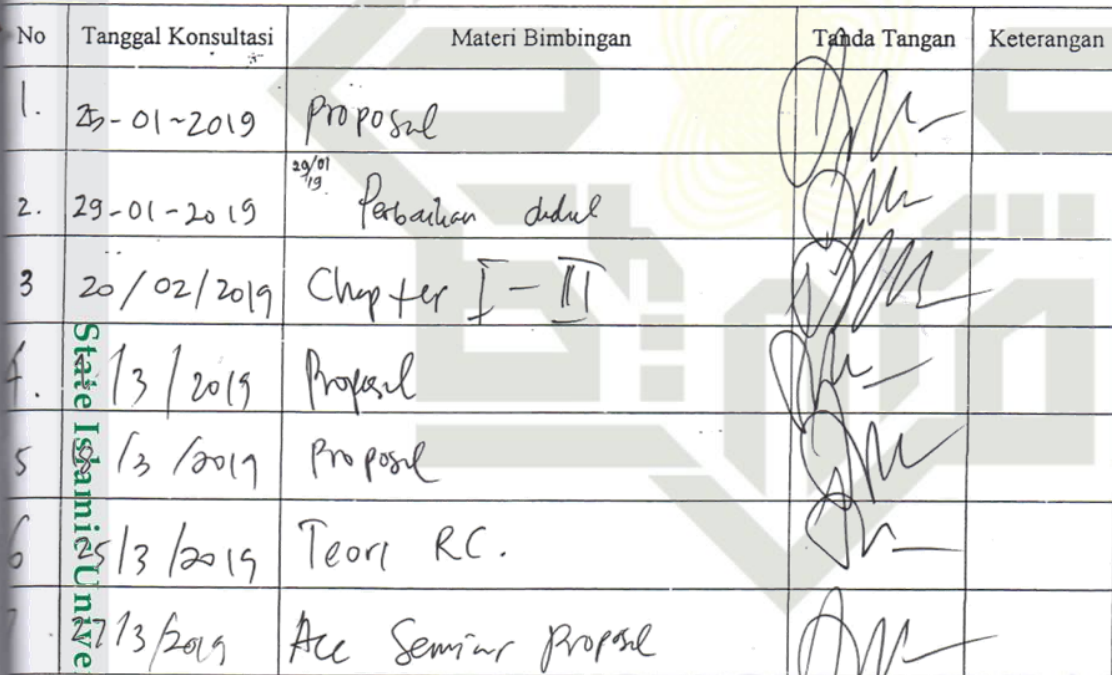 No Tanggal Konsultasi Materi Bimbingan Tanda Tangan Keterangan
1. 25-01-2019 Proposal
29/01/19
2. 29-01-2019 Perbaikan Judul
3 20/02/2019 Chapter I - III
4. /3/2019 Proposal
5 /3/2019 Proposal
6 25/3/2019 Teori RC.
7 27/3/2019 Acc Seminar Proposal
State Islamic Unive